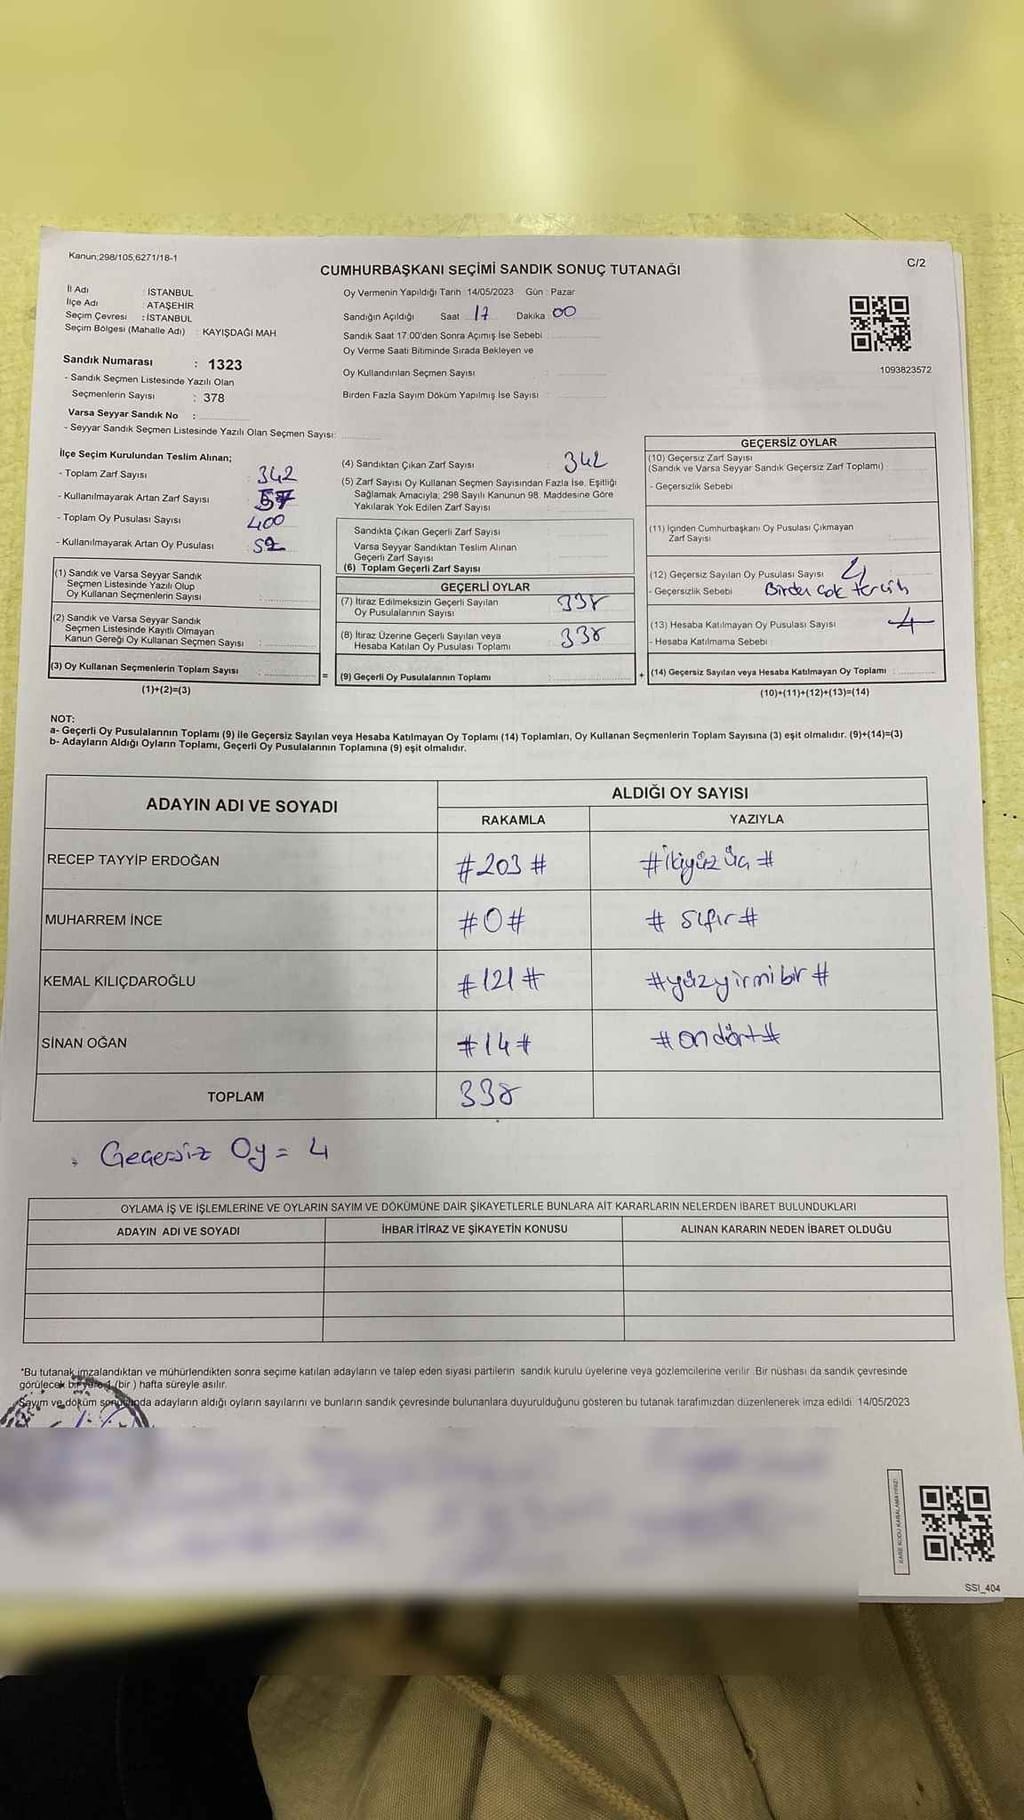 Kanun;298/105,6271/18-1
C/2
CUMHURBAŞKANI SEÇİMİ SANDIK SONUÇ TUTANAĞI
İl Adı : İSTANBUL
İlçe Adı : ATAŞEHİR
Seçim Çevresi : İSTANBUL
Seçim Bölgesi (Mahalle Adı) : KAYIŞDAĞI MAH.
Sandık Numarası : 1323
- Sandık Seçmen Listesinde Yazılı Olan
Seçmenlerin Sayısı : 378
Varsa Seyyar Sandık No :
- Seyyar Sandık Seçmen Listesinde Yazılı Olan Seçmen Sayısı:
Oy Vermenin Yapıldığı Tarih :14/05/2023 Gün : Pazar
Sandığın Açıldığı Saat 17 Dakika 00
Sandık Saat 17:00'den Sonra Açımış İse Sebebi :
Oy Verme Saati Bitiminde Sırada Bekleyen ve
Oy Kullandırılan Seçmen Sayısı :
Birden Fazla Sayım Döküm Yapılmış İse Sayısı :
1093823572
İlçe Seçim Kurulundan Teslim Alınan;
- Toplam Zarf Sayısı : 342
- Kullanılmayarak Artan Zarf Sayısı :
- Toplam Oy Pusulası Sayısı : 400
- Kullanılmayarak Artan Oy Pusulası :
(1) Sandık ve Varsa Seyyar Sandık
Seçmen Listesinde Yazılı Olup
Oy Kullanan Seçmenlerin Sayısı :
(2) Sandık ve Varsa Seyyar Sandık
Seçmen Listesinde Kayıtlı Olmayan
Kanun Gereği Oy Kullanan Seçmen Sayısı :
(3) Oy Kullanan Seçmenlerin Toplam Sayısı :
(1)+(2)=(3)
(4) Sandıktan Çıkan Zarf Sayısı : 342
(5) Zarf Sayısı Oy Kullanan Seçmen Sayısından Fazla İse, Eşitliği
Sağlamak Amacıyla, 298 Sayılı Kanunun 98. Maddesine Göre
Yakılarak Yok Edilen Zarf Sayısı :
Sandıkta Çıkan Geçerli Zarf Sayısı :
Varsa Seyyar Sandıktan Teslim Alınan
Geçerli Zarf Sayısı :
(6) Toplam Geçerli Zarf Sayısı :
GEÇERLİ OYLAR
(7) İtiraz Edilmeksizin Geçerli Sayılan
Oy Pusulalarının Sayısı : 338
(8) İtiraz Üzerine Geçerli Sayılan veya
Hesaba Katılan Oy Pusulası Toplamı : 338
= (9) Geçerli Oy Pusulalarının Toplamı :
GEÇERSİZ OYLAR
(10) Geçersiz Zarf Sayısı
(Sandık ve Varsa Seyyar Sandık Geçersiz Zarf Toplamı) :
- Geçersizlik Sebebi :
(11) İçinden Cumhurbaşkanı Oy Pusulası Çıkmayan
Zarf Sayısı :
(12) Geçersiz Sayılan Oy Pusulası Sayısı : 4
- Geçersizlik Sebebi : Birden çok tercih
(13) Hesaba Katılmayan Oy Pusulası Sayısı : 4
- Hesaba Katılmama Sebebi :
+ (14) Geçersiz Sayılan veya Hesaba Katılmayan Oy Toplamı :
(10)+(11)+(12)+(13)=(14)
NOT:
a- Geçerli Oy Pusulalarının Toplamı (9) ile Geçersiz Sayılan veya Hesaba Katılmayan Oy Toplamı (14) Toplamları, Oy Kullanan Seçmenlerin Toplam Sayısına (3) eşit olmalıdır. (9)+(14)=(3)
b- Adayların Aldığı Oyların Toplamı, Geçerli Oy Pusulalarının Toplamına (9) eşit olmalıdır.
ADAYIN ADI VE SOYADI
ALDIĞI OY SAYISI
RAKAMLA YAZIYLA
RECEP TAYYİP ERDOĞAN #203# #ikiyüz üç#
MUHARREM İNCE #0# #sıfır#
KEMAL KILIÇDAROĞLU #121# #yüzyirmibir#
SİNAN OĞAN #14# #ondört#
TOPLAM 338
Geçersiz Oy = 4
OYLAMA İŞ VE İŞLEMLERİNE VE OYLARIN SAYIM VE DÖKÜMÜNE DAİR ŞİKAYETLERLE BUNLARA AİT KARARLARIN NELERDEN İBARET BULUNDUKLARI
ADAYIN ADI VE SOYADI İHBAR İTİRAZ VE ŞİKAYETİN KONUSU ALINAN KARARIN NEDEN İBARET OLDUĞU
*Bu tutanak imzalandıktan ve mühürlendikten sonra seçime katılan adayların ve talep eden siyasi partilerin sandık kurulu üyelerine veya gözlemcilerine verilir. Bir nüshası da sandık çevresinde
görülecek bir yere 1 (bir) hafta süreyle asılır.
Sayım ve döküm sonucunda adayların aldığı oyların sayılarını ve bunların sandık çevresinde bulunanlara duyurulduğunu gösteren bu tutanak tarafımızdan düzenlenerek imza edildi. 14/05/2023
SSI_404